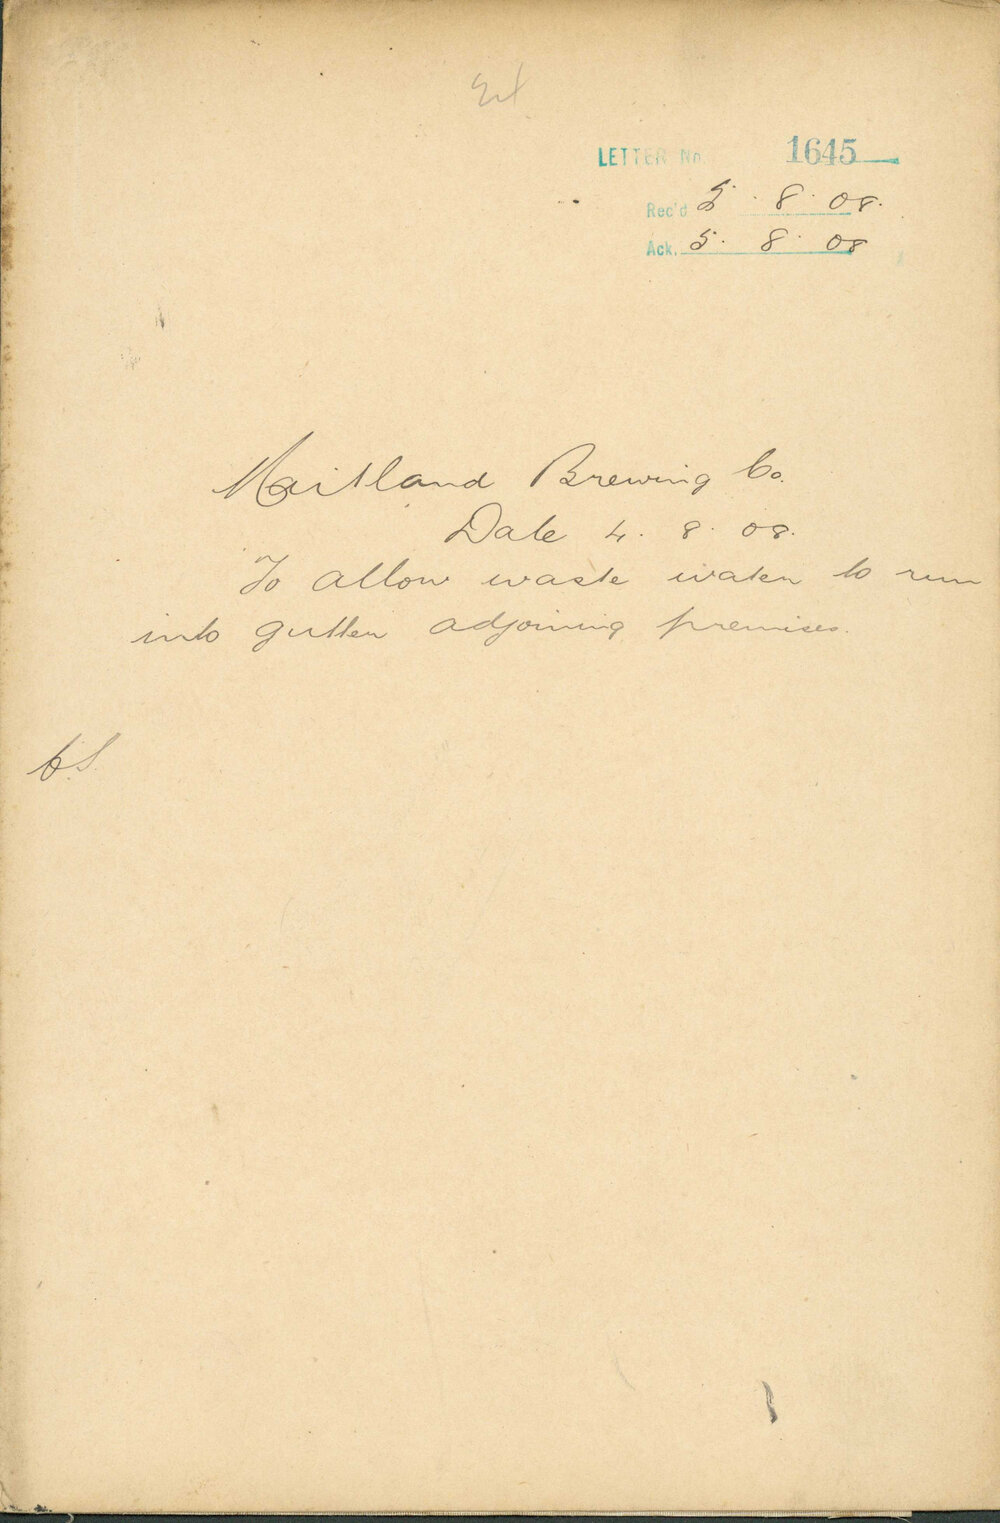 LETTER No. 1645
Rec'd 5. 8. 08.
Ack. 5. 8. 08
Maitland Brewing Co.
Date 4. 8. 08.
To allow waste water to run
into gutter adjoining premises.